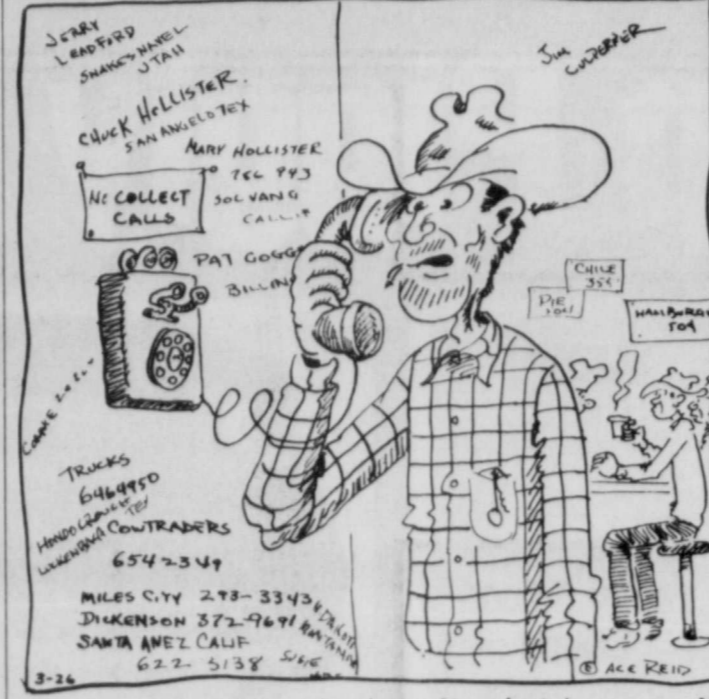 JERRY
LEADFORD
SNAKES NAVEL
UTAH
JIM
CULPEPPER
CHUCK HOLLISTER
SAN ANGELO TEX
MARY HOLLISTER
SOLVANG
CALLIF
NO COLLECT
CALLS
PAT GOGG
BILLIN
CHILE
35¢
PIE
10¢
HAMBURGER
50¢
TRUCKS
6464950
HONDO CROUCH
TEX
COWTRADERS
654 23
MILES CITY 293-3343
DICKENSON 372-9691
SANTA ANEZ CALIF
622 5138
SUSIE
3-26
© ACE REID